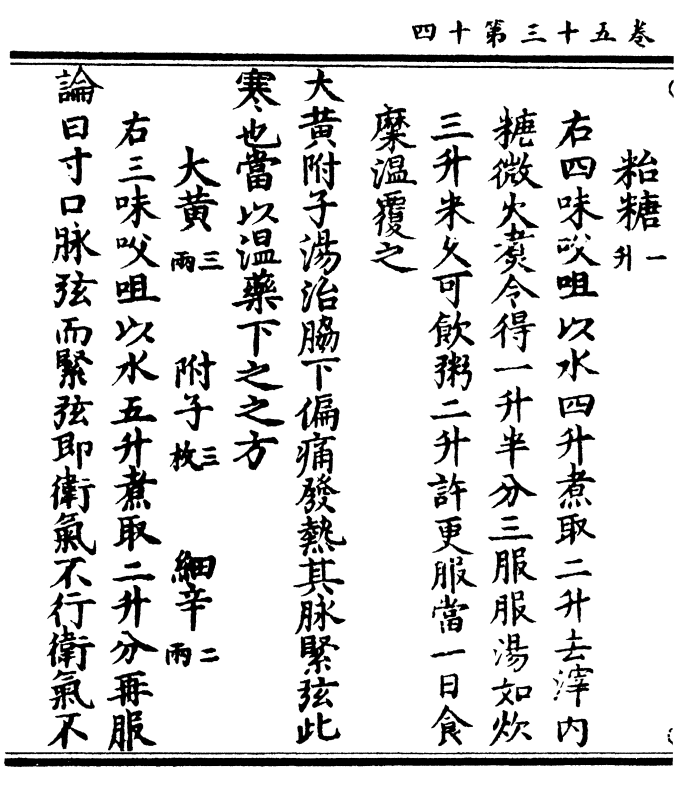 卷五十三第十四
粭糖一升
右四味㕮咀以水四升煮取二升去滓内
糖微火煮令得一升半分三服服湯如炊
三升米久可飲粥二升許更服當一日食
糜温覆之
大黄附子湯治脇下偏痛發熱其脉緊弦此
寒也當以温藥下之之方
大黄三兩 附子三枚 細辛二兩
右三味㕮咀以水五升煮取二升分再服
論曰寸口脉弦而緊弦即衛氣不行衛氣不